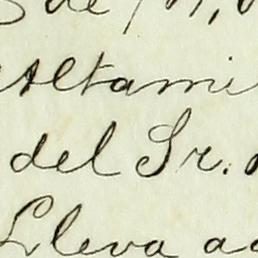 de
Altami
del Sr.
Lleva